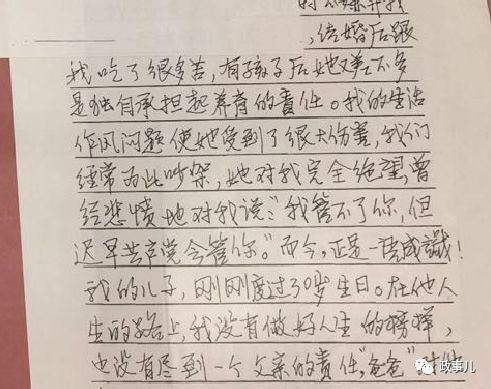 时从嫌弃我
,结婚后跟
我吃了很多苦,有孩子后她又差不多
是独自承担起养育的责任。我的生活
作风问题使她受到了很大伤害,我们
经常为此吵架,她对我完全绝望,曾
经悲愤地对我说:“我管不了你,但
迟早共产党会管你。”而今,正是一语成谶!
我的儿子,刚刚度过30岁生日。在他人
生的路上,我没有做好人生的榜样,
也没有尽到一个父亲的责任“爸爸”
政事儿